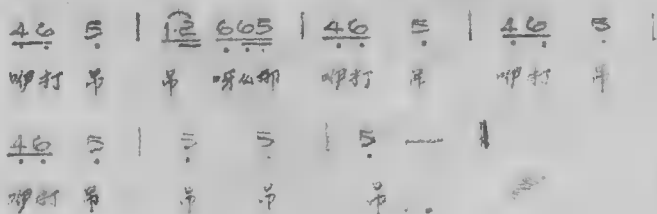 46 5 | 1·2 665 | 46 5 | 46 5 |
咿打 吊 吊 呀么 咿打 吊 咿打 吊
46 5 | 5 5 | 5 — |
咿打 吊 吊 吊 吊